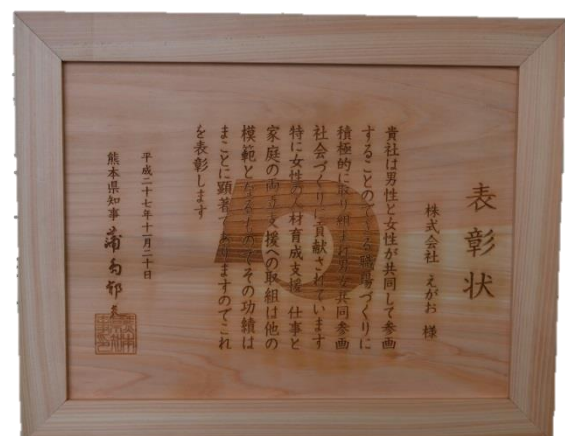 表彰状
株式会社 えがお 様
貴社は男性と女性が共同して参画
することのできる職場づくりに
積極的に取り組まれ男女共同参画
社会づくりに貢献されています
特に女性の人材育成支援 仕事と
家庭の両立支援への取組は他の
模範となるものでその功績は
まことに顕著でありますのでこれ
を表彰します
平成二十七年十一月二十日
熊本県知事 蒲島郁夫